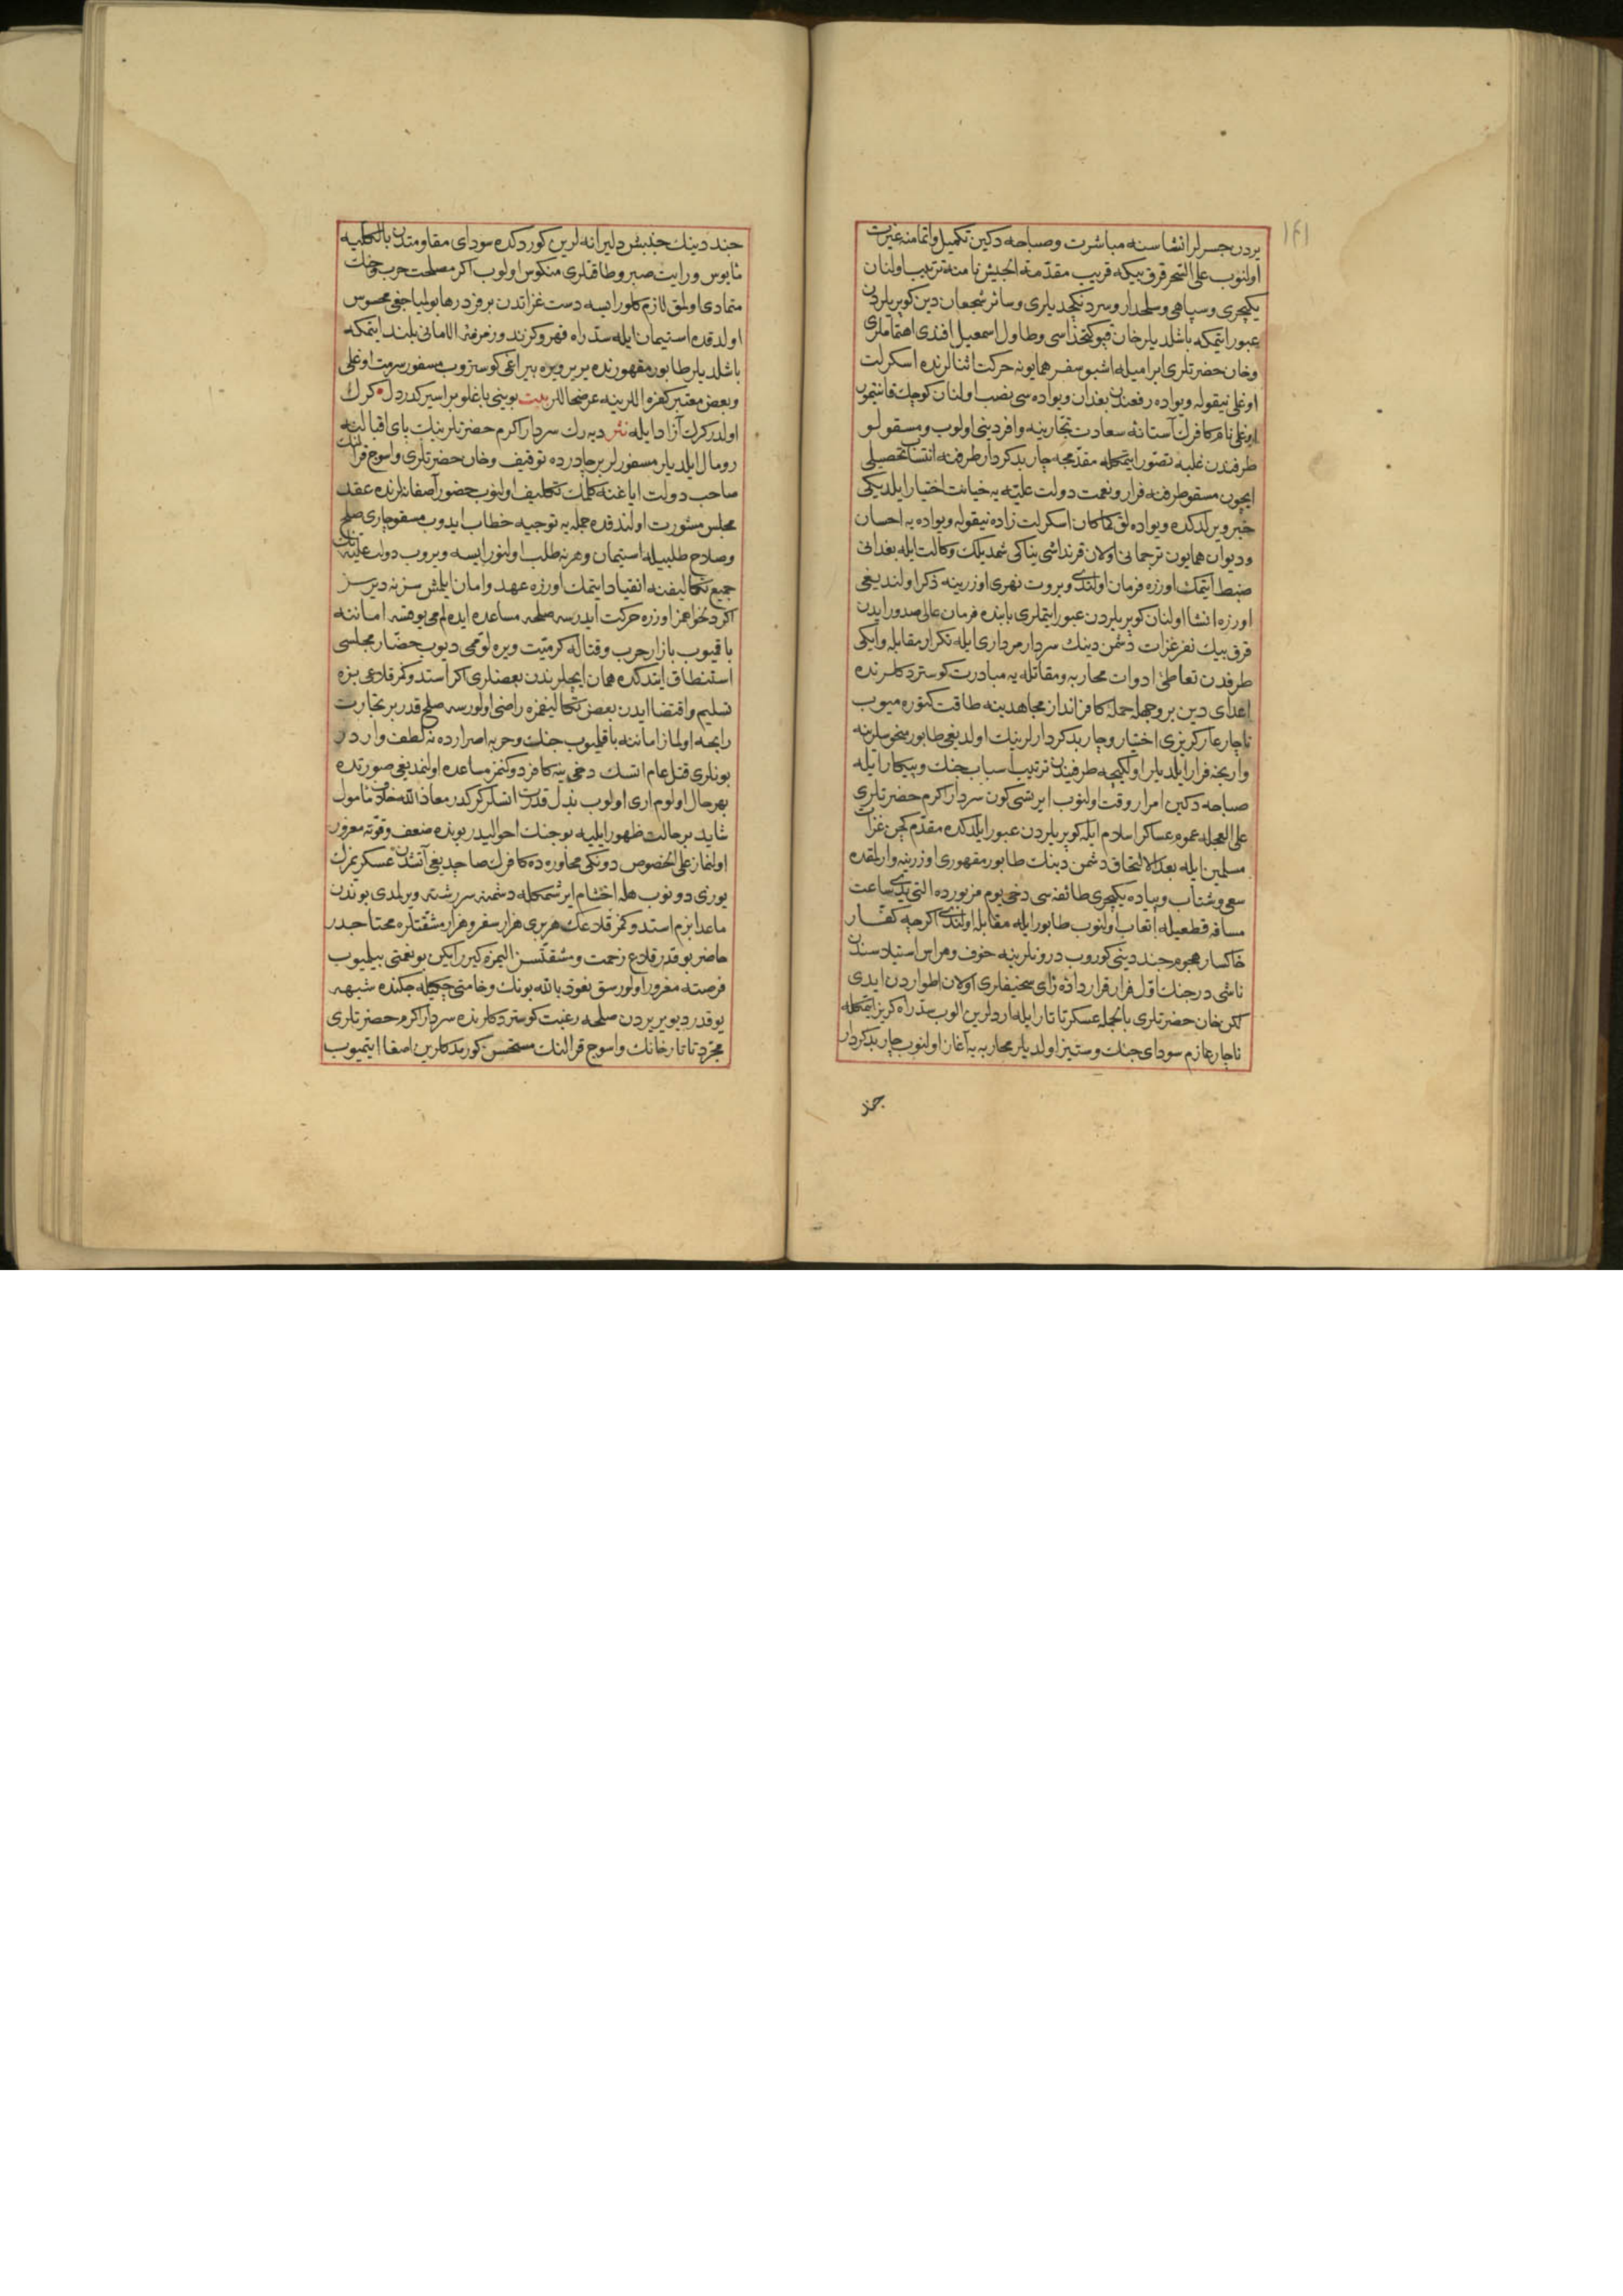 ١٤١
یردن جسرلر انشاسنه مباشرت و صباحه دکین تکمیل و اتمامنه غیرت
اولنوب علی السحر قرق بیکه قریب مقدمة الجیش نامنه ترتیب اولنان
یکیچری و سپاهی و سلحدار و سردنکچدیلری و سائر شجعان دین کوپریلردن
عبور ایتمکه باشلدیلر خان قپوکتخداسی و طاول اسمعیل افندی اهتماملری
و خان حضرتلری ابرامیله اشبو سفر همایونه حرکت اثنالرنده اسکرلت
اوغلی نیقوله ویواده رفعندن بغدان ویواده سی نصب اولنان کوچك قانتمور
اوغلی نام کافرك آستانۀ سعادت تجارینه وافر دینی اولوب و مسقولو
طرفندن غلبه تصور ایتمکله مقدمجه چار بدکردار طرفنه انتساب تحصیلی
ایچون مسقو طرفنه فرار و نعمت دولت علیه یه خیانت اختیار ایلدیکی
خبر ویرلدکده ویواده لق کماکان اسکرلت زاده نیقوله ویواده یه احسان
و دیوان همایون ترجمانی اولان قرنداشی یناکی شمدیلك وکالت ایله بغدانی
ضبط ایتمك اوزره فرمان اولندی و بروت نهری اوزرینه ذکر اولندیغی
اوزره انشا اولنان کوپریلردن عبور ایتملری بابنده فرمان عالی صدور ایدن
قرق بیك نفر غزات دشمن دینك سردار مرداری ایله تکرار مقابله و ایکی
طرفدن تعاطئ ادوات محاربه و مقاتله یه مبادرت کوستردکلرنده
اعدای دین بر وجهله حملۀ کافر انداز مجاهدینه طاقت کتوره میوب
ناچار عار کریزی اختیار و چار بدکردارلرینك اولدیغی طابور منحوسلرینه
واریجه فرار ایلدیلر اولکیجه طرفیندن ترتیب اسباب جنك و پیکار ایله
صباحه دکین امرار وقت اولنوب ایرتسی کون سردار اکرم حضرتلری
علی العجله عموم عساکر اسلام ایله کوپریلردن عبور ایلدکده مقدم کچن غزات
مسلمین ایله بعد الالتحاق دشمن دینك طابور مقهوری اوزرینه وارلمقده
سعی و شتاب و پیاده یکیچری طائفه سی دخی یوم مزبورده التی یدی ساعت
مسافه قطعیله اتعاب اولنوب طابور ایله مقابله اولندی اکرچه کفار
خاکسار هجوم جند دینی کوروب درونلرینه خوف و هراس استیلاسندن
ناشی در جنك اول فرار قرارداده رای سخیفلری اولان اطواردن ایدی
لکن خان حضرتلری بالجمله عسکر تاتار ایله اردلرین الوب سد راه کریز ایتمکله
ناچار عازم سودای جنك و ستیز اولدیلر محاربه یه آغاز اولنوب چار بدکردار
جند
جند دینك جنبش دلیرانه لرین کوردکده سودای مقاومتدن بالکلیه
مأیوس و رایت صبر و طاقتلری منکوس اولوب اکر مصلحت حرب و جنك
متمادی اولمق لازم کلورایسه دست غزاتدن بر فرد رها بولمیاجغی محسوس
اولدقده استیمان ایله سد راه قهر و کزند و زمزمۀ الامانی بلند ایتمکه
باشلدیلر طابور مقهورنده یر یر ویره بیراغی کوستروب مسفور سرمت اوغلی
و بعض معتبر کفره اللرینه عرضحاللر بیت بوینی باغلو بر اسیرکدر دل کرك
اولدر کرك آزاد ایله نثر دیه رك سردار اکرم حضرتلرینك پای اقبالنه
رومال ایلدیلر مسفورلر بر چادرده توقیف و خان حضرتلری و اسوج قرالنك
صاحب دولت ایاغنه کلمك تکلیف اولنوب حضور آصفانه لرنده عقد
مجلس مشورت اولندقده جمله یه توجیه خطاب ایدوب مسقو چاری صلح
و صلاح طلبیله استیمان و هر نه طلب اولنورایسه ویروب دولت علیه نك
جمیع تکالیفنه انقیاد ایتمك اوزره عهد و امان ایلمش سز نه دیرسز
اکر دلخواهمز اوزره حرکت ایدرسه صلحه مساعده ایده لم می یوقسه اماننه
باقیوب بازار حرب و قتاله کرمیت ویره لوممی دیوب حضار مجلسی
استنطاق ایتدکده همان ایچلرندن بعضلری اکر استدوکمز قلاعی بزه
تسلیم و اقتضا ایدن بعض تکالیفمزه راضی اولورسه صلح قدر بر تجارت
رابحه اولماز اماننه باقیلیوب جنك و حربه اصرارده نه لطف واردر
بونلری قتل عام اتسك دخی ینه کافر دوکنمز مساعده اولنمدیغی صورتده
بهرحال اولوم اری اولوب بذل قدرت اتسلر کرکدر معاذ الله خلاف مأمول
شاید بر حالت ظهور ایلیه بو جنك احوالیدر بونده ضعف و قوته مغرور
اولنماز علی الخصوص دونکی محاوره ده کافرك صاچدیغی آتشدن عسکریمزك
یوزی دونوب هله اخشام ایرشمکله دشمنه سررشته ویرلمدی بوندن
ماعدا بزم استدوکمز قلاعك هر بری هزار سفر و هزار مشقتلره محتاجدر
حاضر بو قدر قلاع زحمت و مشقتسز المزه کیررایکن بو نعمتی بیلمیوب
فرصته مغرور اولورسق نعوذ بالله بونك وخامتی چکیله جکنده شبهه
یوقدر دیو بر یردن صلحه رغبت کوستردکلرنده سردار اکرم حضرتلری
مجرد تاتار خانك و اسوج قرالنك مستحسن کوردکلرین اصغا ایتمیوب